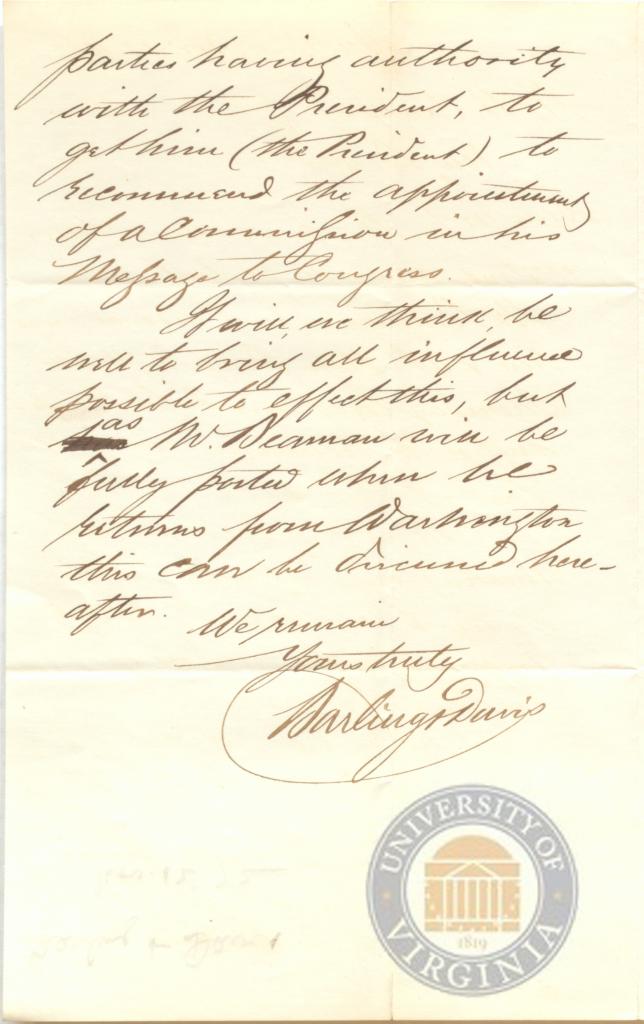 parties having authority
with the President, to
get him (the President) to
recommend the appointment
of a Commission in his
Message to Congress.
It will, we think, be
well to bring all influence
possible to effect this, but
as Mr. Beaman will be
fully posted when he
returns from Washington
this can be discussed here-
after.
We remain
Yours truly
Darling & Davis
UNIVERSITY OF
1819
VIRGINIA